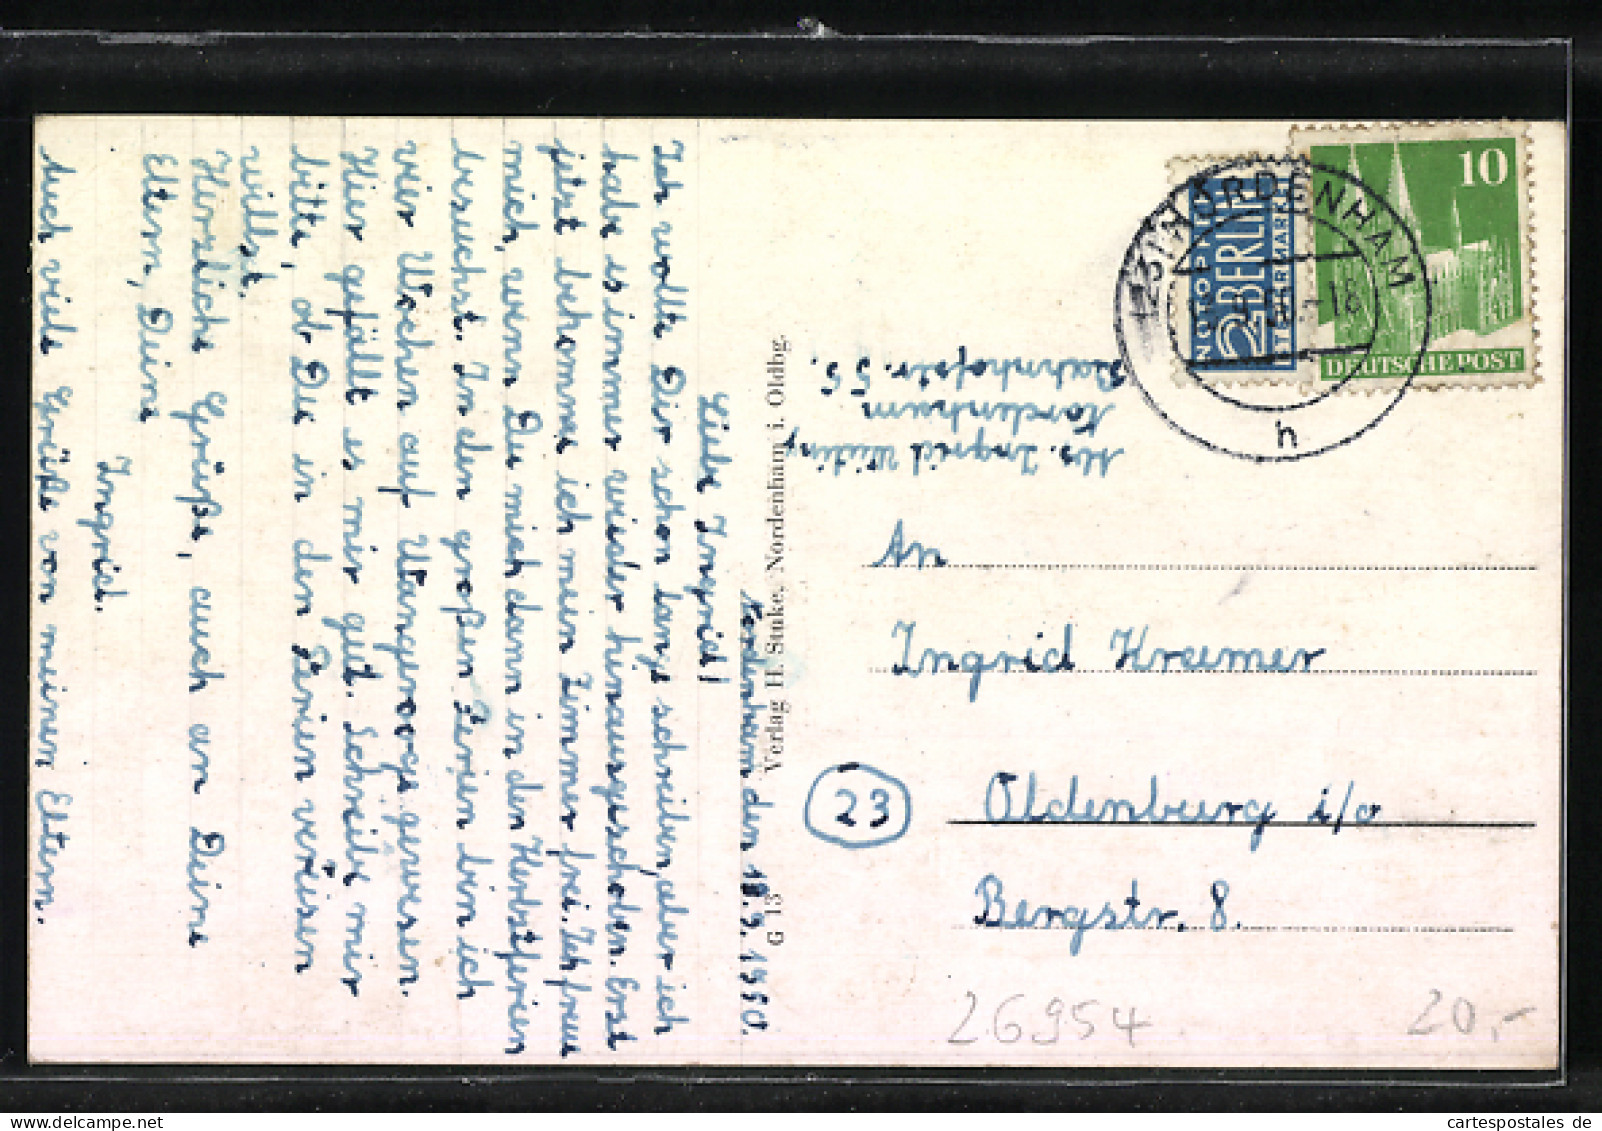 Nordenham den 18.9.1950.
Liebe Ingrid!
Ich wollte Dir schon lange schreiben, aber ich
habe es immer wieder hinausgeschoben. Erst
jetzt bekomme ich mein Zimmer frei. Ich freue
mich, wenn Du mich dann in den Herbstferien
besuchst. In den großen Ferien bin ich
vier Wochen auf Wangerooge gewesen.
Hier gefällt es mir gut. Schreibe mir
bitte, ob Du in den Ferien verreisen
willst.
Herzliche Grüße, auch an Deine
Eltern, Deine
Ingrid.
Auch viele Grüße von meinen Eltern.
G 13 Verlag H. Stuke, Nordenham i. Oldbg.
Abs. Ingrid
Nordenham
Bahnhofstr. 55.
NOTOPFER
2 BERLIN
STEUERMARKE
10
DEUTSCHE POST
(23) NORDENHAM
-18
h
An
Ingrid Kramer
23
Oldenburg i/o
Bergstr. 8.
26954
20,-
cartespostales de
www.cartespostales.de